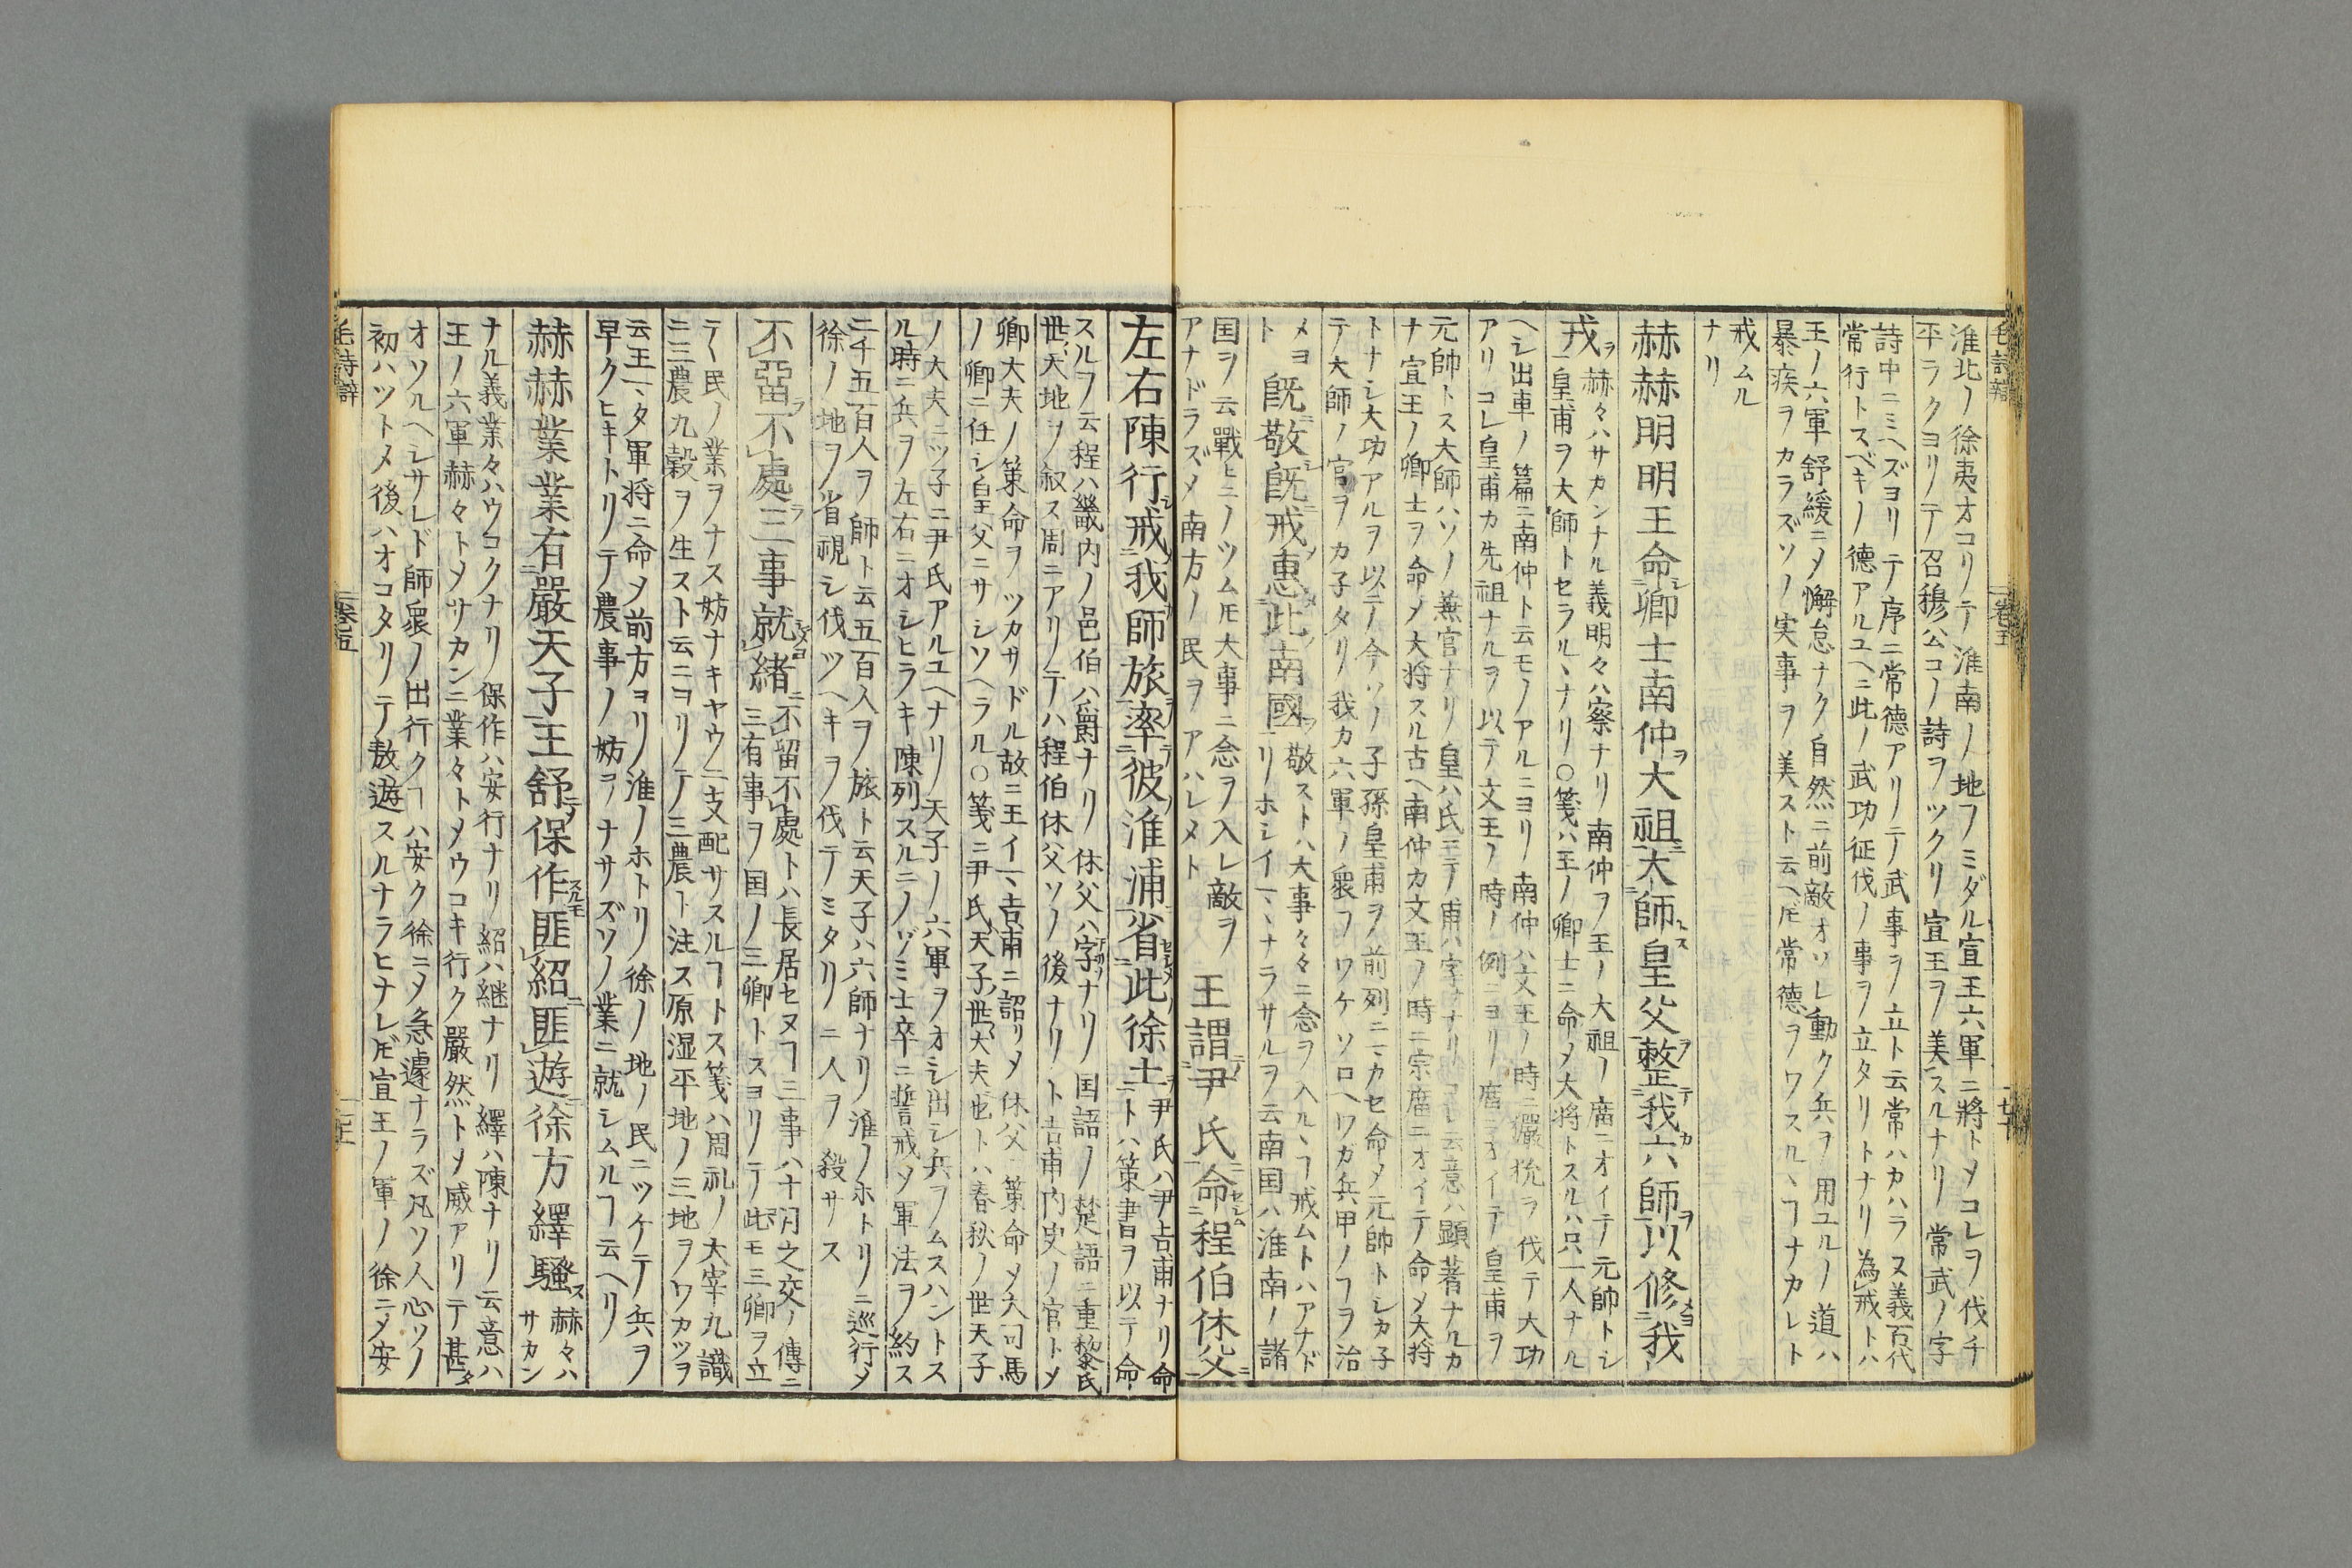 淮北ノ徐夷オコリテ淮南ノ地ヲミダル宣王六軍ニ將トメコレヲ伐チ
平ラクヨリテ召穆公コノ詩ヲツクリ宣王ヲ美スルナリ常武ノ字
詩中ニミヘズヨリテ序ニ常德アリテ武事ヲ立ト云常ハカハラヌ義百代
常行トスベキノ德アルユヘニ此ノ武功征伐ノ事ヲ立タリトナリ為戒トハ
王ノ六軍舒緩ニメ懈怠ナク自然ニ前敵オソレ動ク兵ヲ用ユルノ道ハ
暴疾ヲカラズソノ実事ヲ美スト云ヘ𪜈常德ヲワスルヽヿナカレト
戒ムル
ナリ
赫赫明明王命卿士南仲大祖大師皇父整我六師以修我
戎
赫々ハサカンナル義明々ハ察ナリ南仲ヲ王ノ大祖ノ庿ニオイテ元帥トシ
皇甫ヲ大師トセラルヽナリ○箋ハ王ノ卿士ニ命メ大将トスルハ只一人ナル
ヘシ出車ノ篇ニ南仲ト云モノアルニヨリ南仲ハ文王ノ時ニ玁狁ヲ伐テ大功
アリコレ皇甫カ先祖ナルヲ以テ文王ノ時ノ例ニヨリ庿ニオイテ皇甫ヲ
元帥トス大師ハソノ兼官ナリ皇ハ氏ニテ甫ハ字ナリコレ云意ハ顕著ナルカ
ナ宣王ノ卿士ヲ命メ大将スル古ヘ南仲カ文王ノ時ニ宗庿ニオイテ命メ大将
トナシ大功アルヲ以テ今ソノ子孫皇甫ヲ前列ニマカセ命メ元帥トシカ子
テ大師ノ官ヲカ子タリ我カ六軍ノ衆ヲワケソロヘワガ兵甲ノヿヲ治
メヨ
ト
既敬既戒惠此南國
敬ストハ大事々々ニ念ヲ入ルヽヿ戒ムトハアナド
リホシイマヽナラサルヲ云南国ハ淮南ノ諸
国ヲ云戰ヒニノツム𪜈大事ニ念ヲ入レ敵ヲ
アナドラズメ南方ノ民ヲアハレメト
王謂尹氏命程伯休父
左右陳行戒我師旅率彼淮浦省此徐土
尹氏ハ尹吉甫ナリ命
トハ策書ヲ以テ命
スルヲ云程ハ畿内ノ邑伯ハ爵ナリ休父ハ字ナリ国語ノ楚語ニ重黎氏
世々天地ヲ叙ス周ニアリテハ程伯休父ソノ後ナリト吉甫内史ノ官トメ
卿大夫ノ策命ヲツカサドル故ニ王イマ吉甫ニ詔リメ休父ニ策命メ大司馬
ノ卿ニ任シ皇父ニサシソヘラル○箋ニ尹氏天子世大夫也トハ春秋ノ世天子
ノ大夫ニツ子ニ尹氏アルユヘナリ天子ノ六軍ヲオシ出シ兵ヲムスハントス
ル時ニ兵ヲ左右ニオシヒラキ陳列スルニノゾミ士卒ニ誓戒メ軍法ヲ約ス
二千五百人ヲ師ト云五百人ヲ旅ト云天子ハ六師ナリ淮ノホトリニ巡行メ
徐ノ地ヲ省視シ伐ツヘキヲ伐テミタリニ人ヲ殺サス
不留不處三事就緒
不留不處トハ長居セヌヿ三事ハ十月之交ノ傳ニ
三有事ヲ国ノ三卿トスヨリテ此モ三卿ヲ立
テヽ民ノ業ヲナス妨ナキヤウニ支配サスルヿトス箋ハ周礼ノ大宰九識
ニ三農九穀ヲ生スト云ニヨリテ三農ト注ス原湿平地ノ三地ヲワカツヲ
云王マタ軍将ニ命メ前方ヨリ淮ノホトリ徐ノ地ノ民ニツケテ兵ヲ
早クヒキトリテ農事ノ妨ヲナサズソノ業ニ就シムルヿ云ヘリ
赫赫業業有嚴天子王舒保作匪紹匪遊徐方繹騷
赫々ハ
サカン
ナル義業々ハウコクナリ保作ハ安行ナリ紹ハ継ナリ繹ハ陳ナリ云意ハ
王ノ六軍赫々トメサカンニ業々トメウコキ行ク嚴然トメ威アリテ甚タ
オソルヘシサレド師衆ノ出行クヿハ安ク徐ニメ急遽ナラズ凡ソ人心ソノ
初ハツトメ後ハオコタリテ敖遊スルナラヒナレ𪜈宣王ノ軍ノ徐ニメ安
毛詩辯
卷五